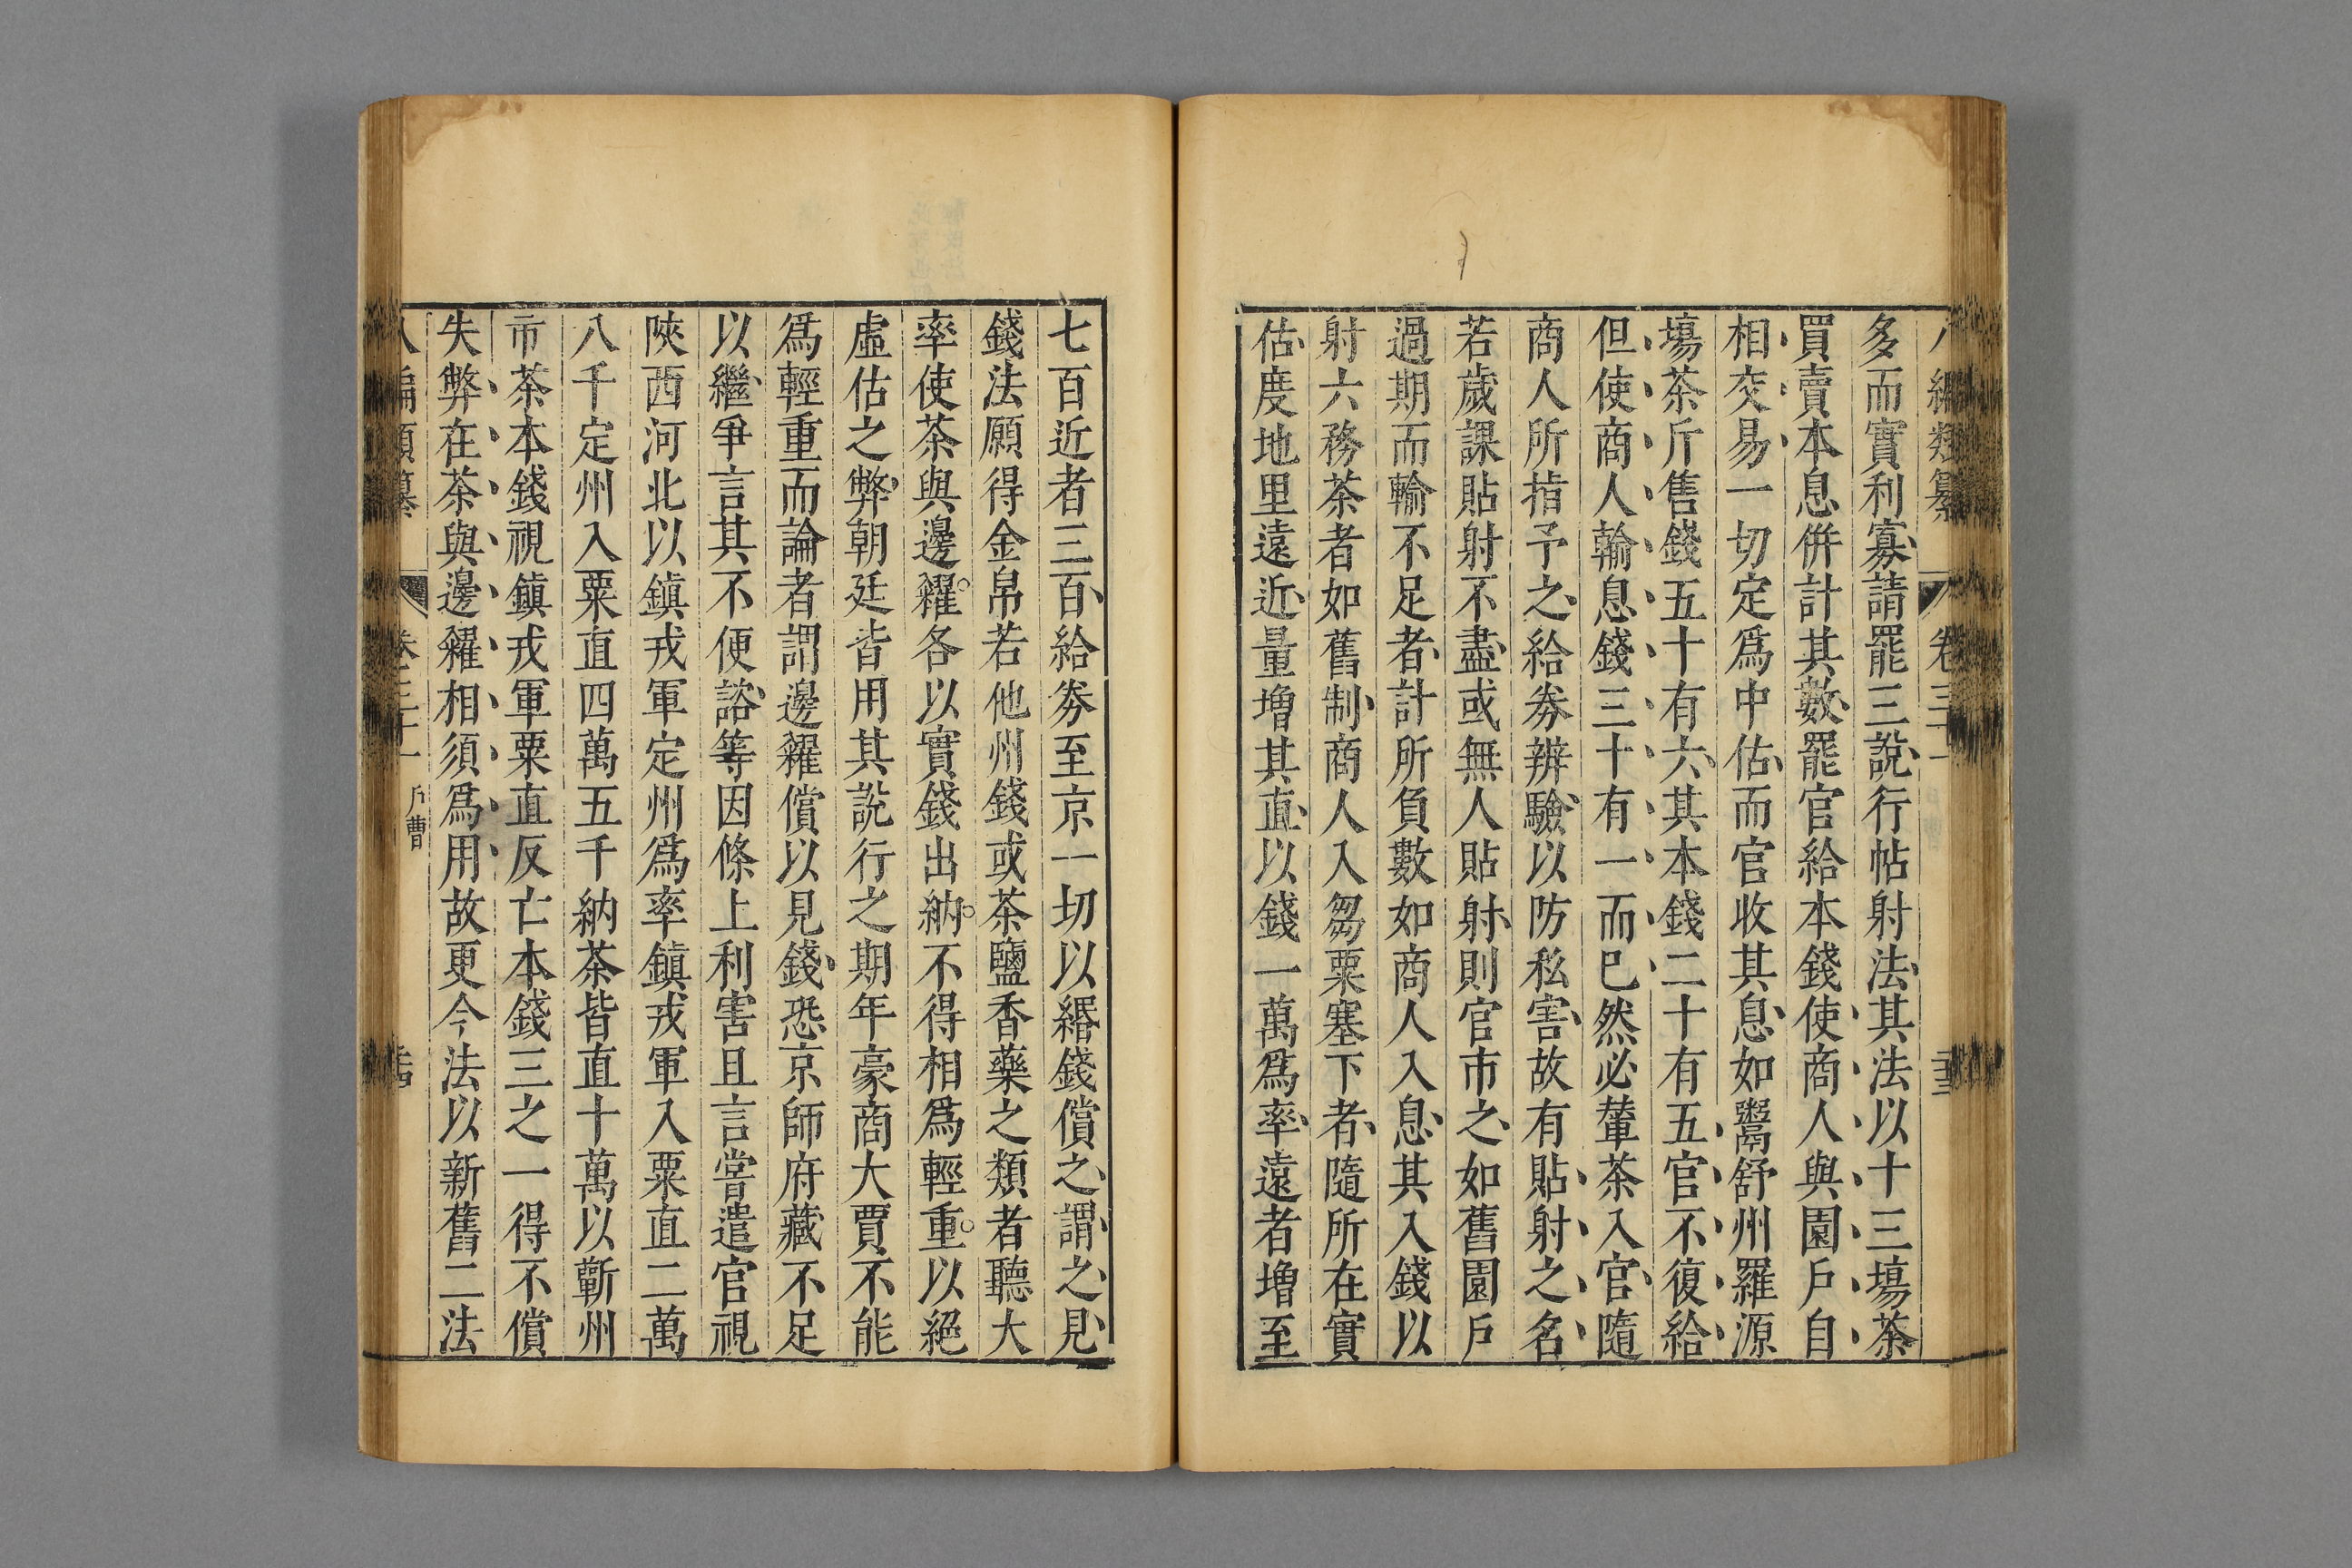 多而實利寡請罷三說行帖射法其法以十三場茶
買賣本息併計其數罷官給本錢使商人與園戶自
相交易一切定爲中估而官收其息如鬻舒州羅源
場茶斤售錢五十有六其本錢二十有五官不復給
但使商人輸息錢三十有一而已然必輦茶入官隨
商人所指予之給券辨驗以防私害故有貼射之名
若歲課貼射不盡或無人貼射則官市之如舊園戶
過期而輸不足者計所負數如商人入息其入錢以
射六務茶者如舊制商人入芻粟塞下者隨所在實
估度地里遠近量增其直以錢一萬爲率遠者增至
七百近者三百給券至京一切以緡錢償之謂之見
錢法願得金帛若他州錢或茶鹽香藥之類者聽大
率使茶與邊糴各以實錢出納不得相爲輕重以絕
虛估之弊朝廷皆用其說行之期年豪商大賈不能
爲輕重而論者謂邊糴償以見錢恐京師府藏不足
以繼爭言其不便諮等因條上利害且言嘗遣官視
陝西河北以鎮戎軍定州爲率鎮戎軍入粟直二萬
八千定州入粟直四萬五千納茶皆直十萬以蘄州
市茶本錢視鎮戎軍粟直反亡本錢三之一得不償
失弊在茶與邊糴相須爲用故更今法以新舊二法
卷三十一 戶曹